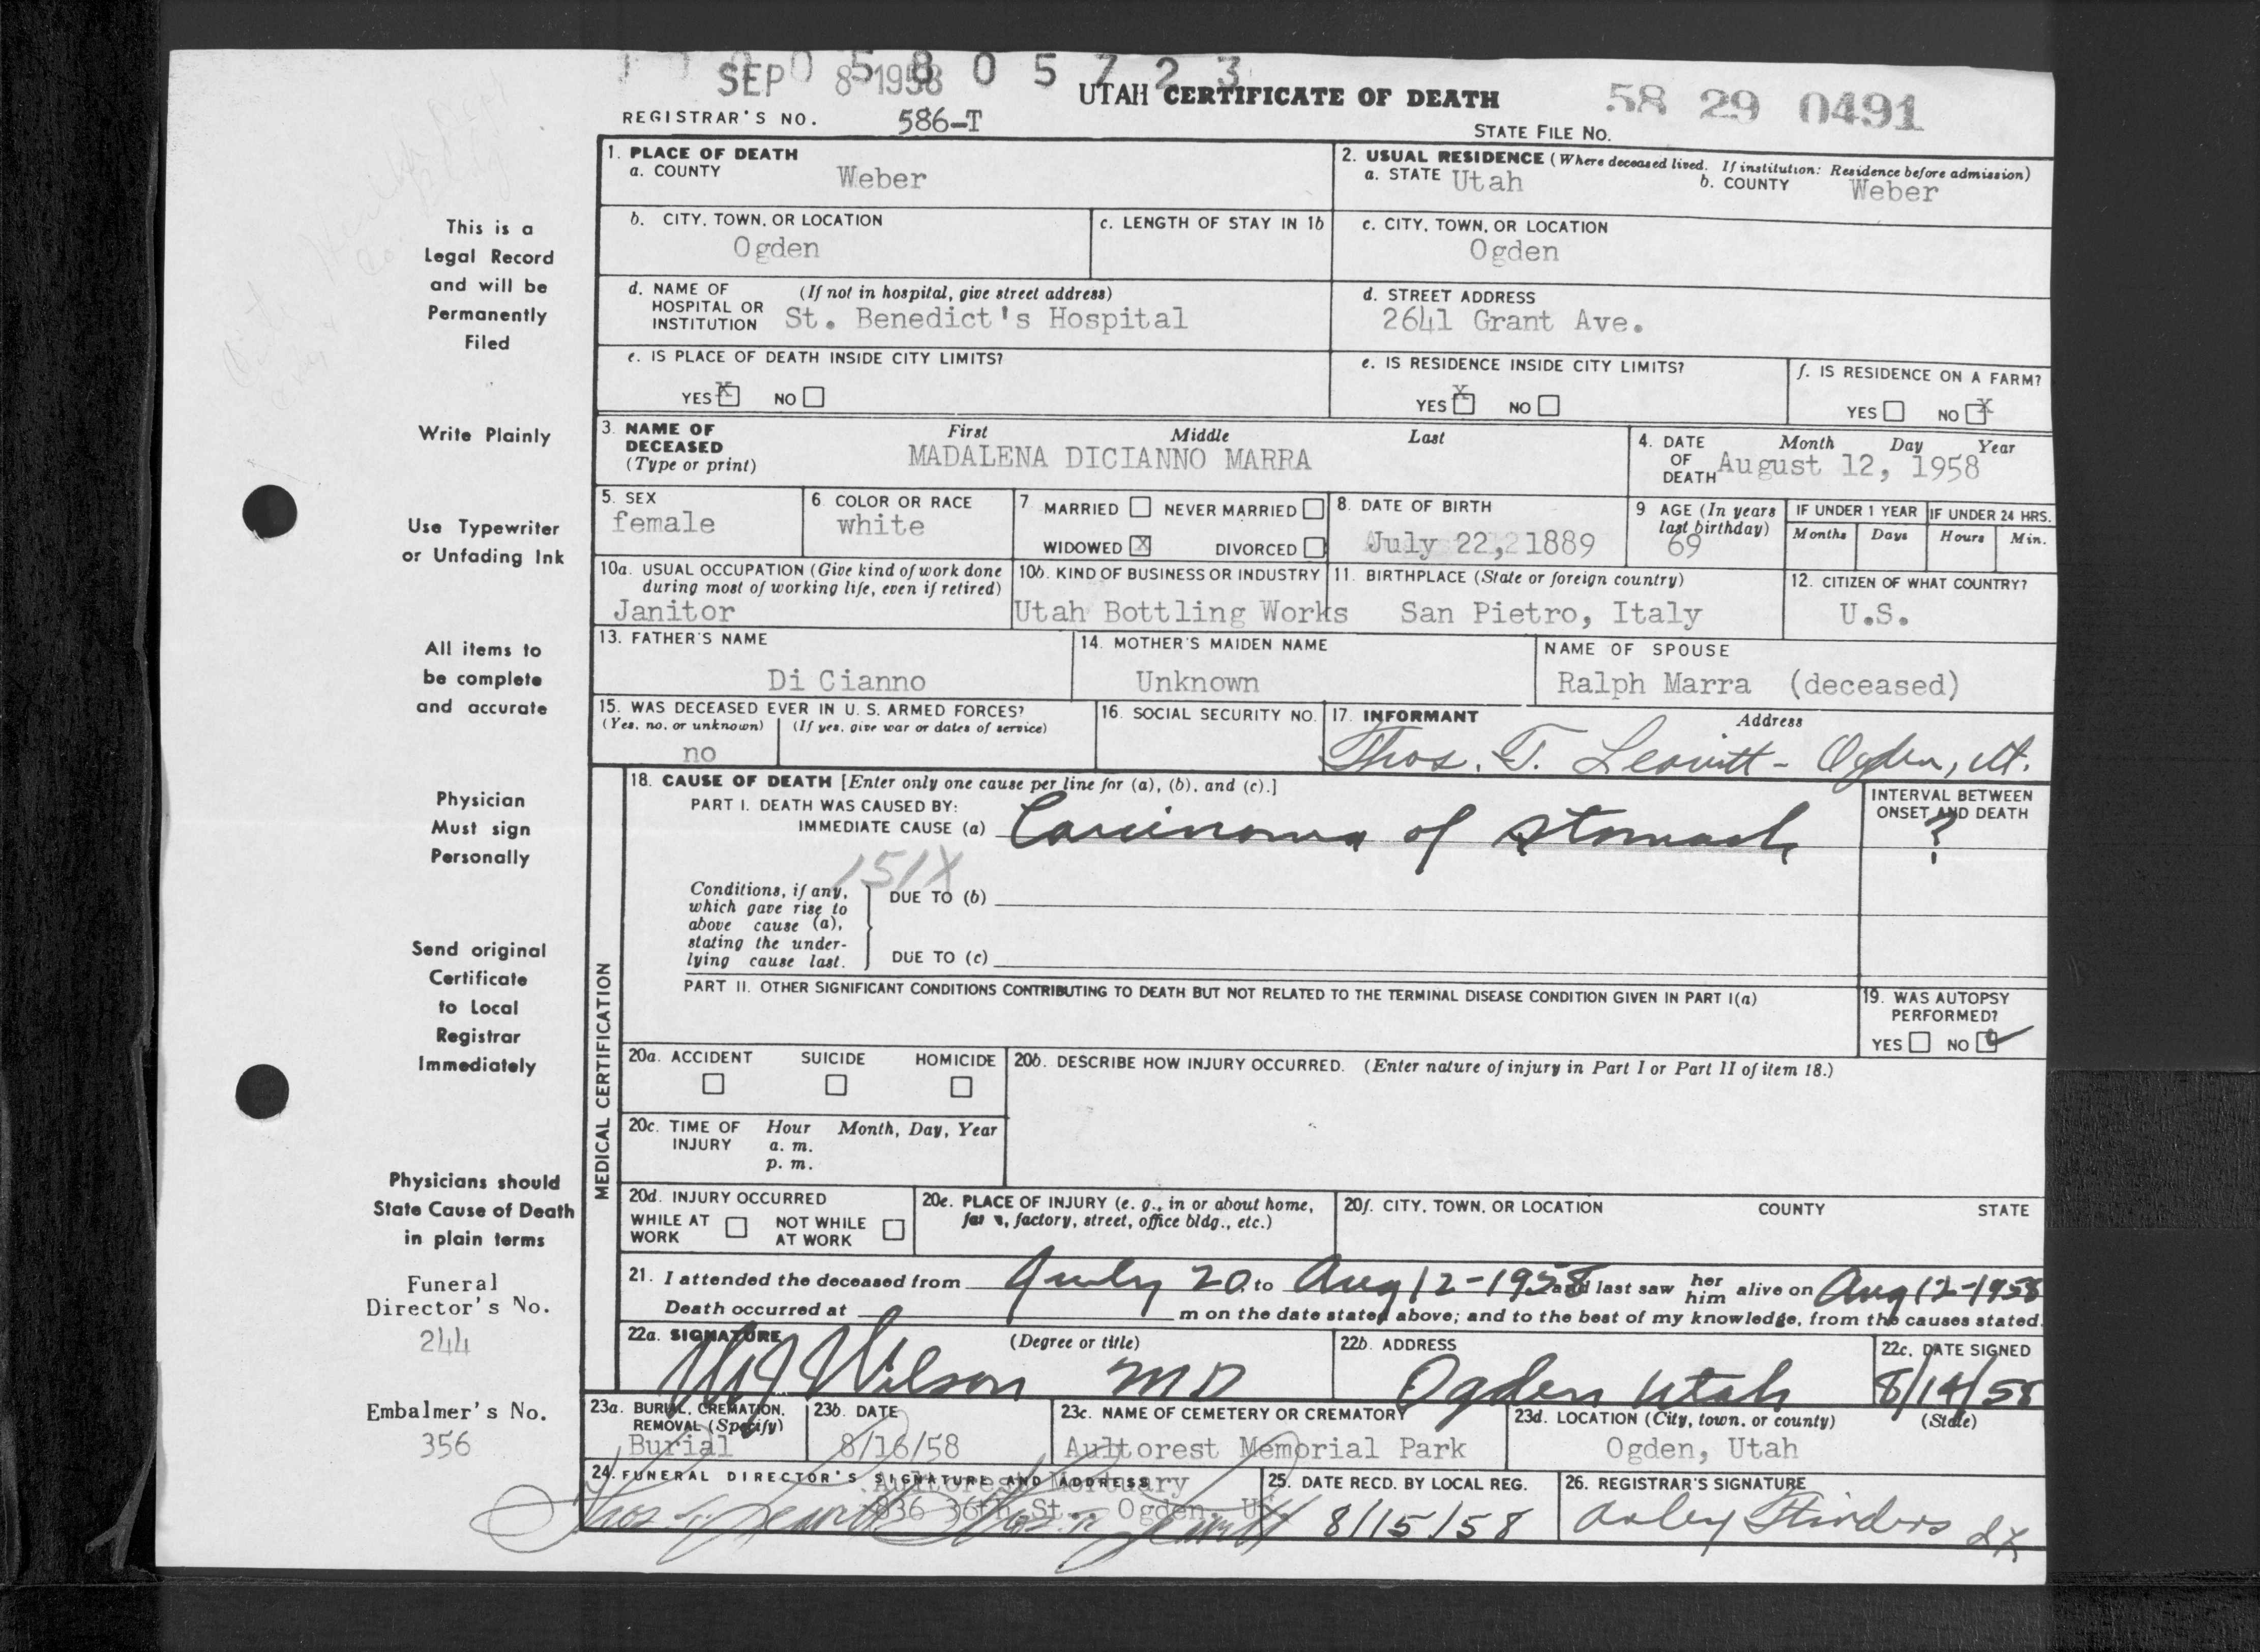 SEP 8 1958
05723
UTAH CERTIFICATE OF DEATH
58 29 0491
REGISTRAR'S NO. 586-T
STATE FILE NO.
This is a
Legal Record
and will be
Permanently
Filed
Write Plainly
Use Typewriter
or Unfading Ink
All items to
be complete
and accurate
Physician
Must sign
Personally
Send original
Certificate
to Local
Registrar
Immediately
Physicians should
State Cause of Death
in plain terms
Funeral
Director's No.
244
Embalmer's No.
356
1. PLACE OF DEATH
a. COUNTY Weber
2. USUAL RESIDENCE (Where deceased lived. If institution: Residence before admission)
a. STATE Utah b. COUNTY Weber
b. CITY, TOWN, OR LOCATION
Ogden
c. LENGTH OF STAY IN 1b
c. CITY, TOWN, OR LOCATION
Ogden
d. NAME OF (If not in hospital, give street address)
HOSPITAL OR
INSTITUTION St. Benedict's Hospital
d. STREET ADDRESS
2641 Grant Ave.
e. IS PLACE OF DEATH INSIDE CITY LIMITS?
YES X NO
e. IS RESIDENCE INSIDE CITY LIMITS?
YES X NO
f. IS RESIDENCE ON A FARM?
YES NO X
3. NAME OF DECEASED (Type or print)
First Middle Last
MADALENA DICIANNO MARRA
4. DATE OF DEATH Month Day Year
August 12, 1958
5. SEX
female
6 COLOR OR RACE
white
7 MARRIED NEVER MARRIED
WIDOWED X DIVORCED
8. DATE OF BIRTH
July 22, 1889
9 AGE (In years last birthday)
69
IF UNDER 1 YEAR
Months Days
IF UNDER 24 HRS.
Hours Min.
10a. USUAL OCCUPATION (Give kind of work done
during most of working life, even if retired)
Janitor
10b. KIND OF BUSINESS OR INDUSTRY
Utah Bottling Works
11. BIRTHPLACE (State or foreign country)
San Pietro, Italy
12. CITIZEN OF WHAT COUNTRY?
U.S.
13. FATHER'S NAME
Di Cianno
14. MOTHER'S MAIDEN NAME
Unknown
NAME OF SPOUSE
Ralph Marra (deceased)
15. WAS DECEASED EVER IN U. S. ARMED FORCES?
(Yes, no, or unknown) (If yes, give war or dates of service)
no
16. SOCIAL SECURITY NO.
17. INFORMANT Address
Thos. T. Leavitt - Ogden, Ut.
MEDICAL CERTIFICATION
18. CAUSE OF DEATH [Enter only one cause per line for (a), (b), and (c).]
PART I. DEATH WAS CAUSED BY:
IMMEDIATE CAUSE (a) Carcinoma of stomach
INTERVAL BETWEEN
ONSET AND DEATH
?
151X
Conditions, if any,
which gave rise to
above cause (a),
stating the under-
lying cause last.
DUE TO (b)
DUE TO (c)
PART II. OTHER SIGNIFICANT CONDITIONS CONTRIBUTING TO DEATH BUT NOT RELATED TO THE TERMINAL DISEASE CONDITION GIVEN IN PART I(a)
19. WAS AUTOPSY
PERFORMED?
YES NO
20a. ACCIDENT SUICIDE HOMICIDE
20b. DESCRIBE HOW INJURY OCCURRED. (Enter nature of injury in Part I or Part II of item 18.)
20c. TIME OF INJURY Hour Month, Day, Year
a. m.
p. m.
20d. INJURY OCCURRED
WHILE AT WORK NOT WHILE AT WORK
20e. PLACE OF INJURY (e. g., in or about home,
farm, factory, street, office bldg., etc.)
20f. CITY, TOWN, OR LOCATION COUNTY STATE
21. I attended the deceased from July 20 to Aug 12-1958 and last saw her him alive on Aug 12-1958
Death occurred at m on the date stated above; and to the best of my knowledge, from the causes stated.
22a. SIGNATURE (Degree or title)
Wilson MD
22b. ADDRESS
Ogden Utah
22c. DATE SIGNED
8/14/58
23a. BURIAL, CREMATION,
REMOVAL (Specify)
Burial
23b. DATE
8/16/58
23c. NAME OF CEMETERY OR CREMATORY
Aultorest Memorial Park
23d. LOCATION (City, town, or county) (State)
Ogden, Utah
24. FUNERAL DIRECTOR'S SIGNATURE AND ADDRESS
Aultorest Mortuary
836 36th St. Ogden, Ut
25. DATE RECD. BY LOCAL REG.
8/15/58
26. REGISTRAR'S SIGNATURE